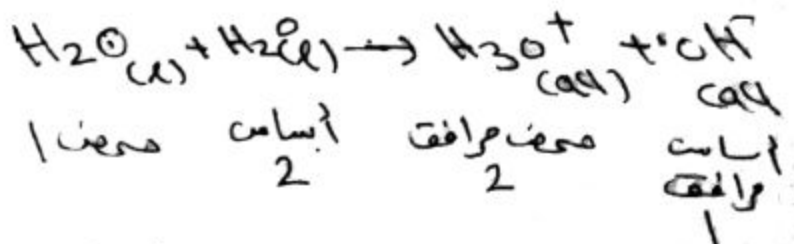 H₂O(l) + H₂O(l) → H₃O⁺(aq) + OH⁻(aq)
حمض 1 أساس 2 حمض مرافق 2 أساس مرافق 1